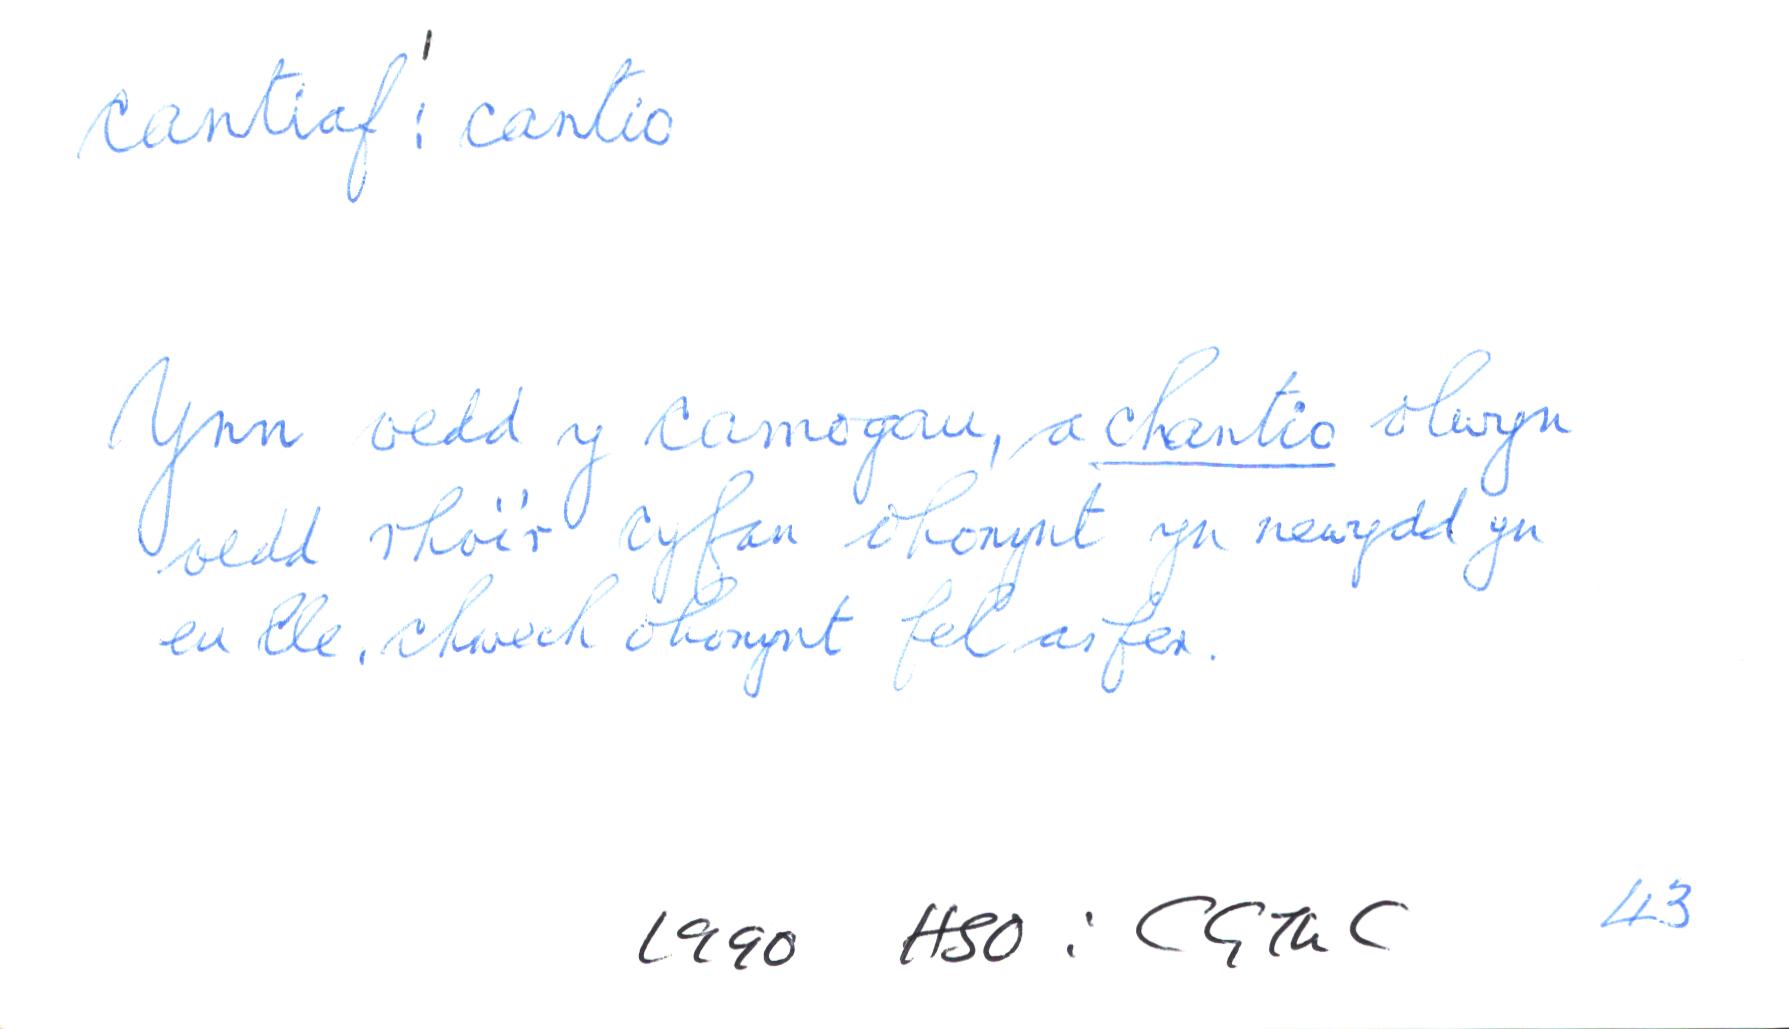 cantiaf¹: cantio
Ynn oedd y camogau, a chantio olwyn
oedd rhoi'r cyfan ohonynt yn newydd yn
eu lle, chwech ohonynt fel arfer.
1990 HSO : CGThC 43